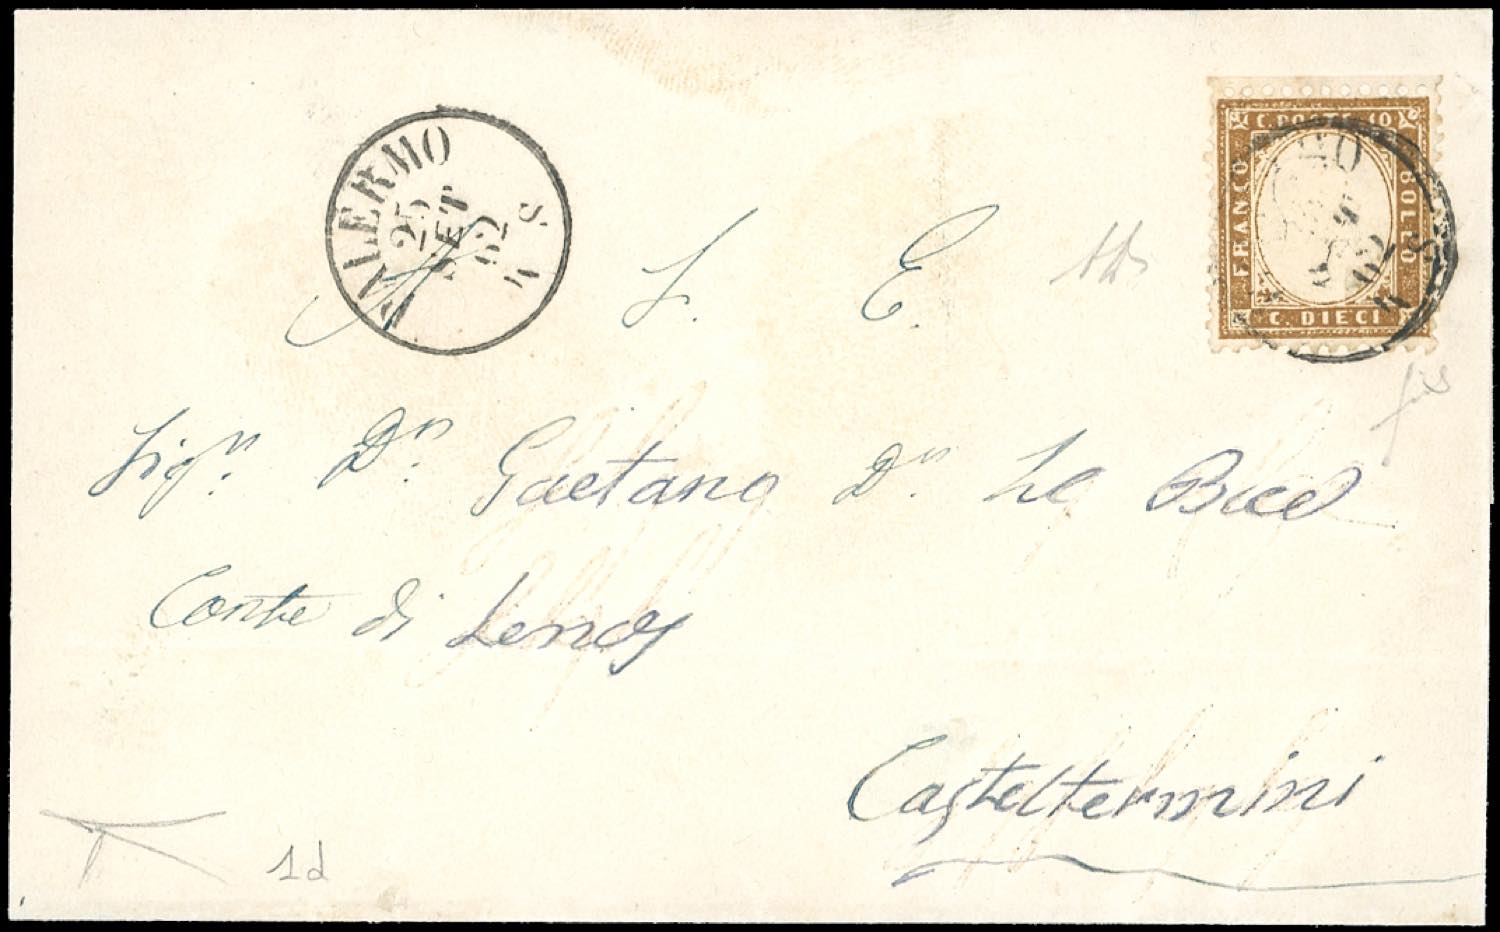 PALERMO
25
SET
62
5 S
C. POSTE 10
FRANCO
BOLLO
C. DIECI
62
A S. E.
Sigr. Dn. Gaetano Dn. Lo Bue
Conte di Lenos
Casteltermini
1d